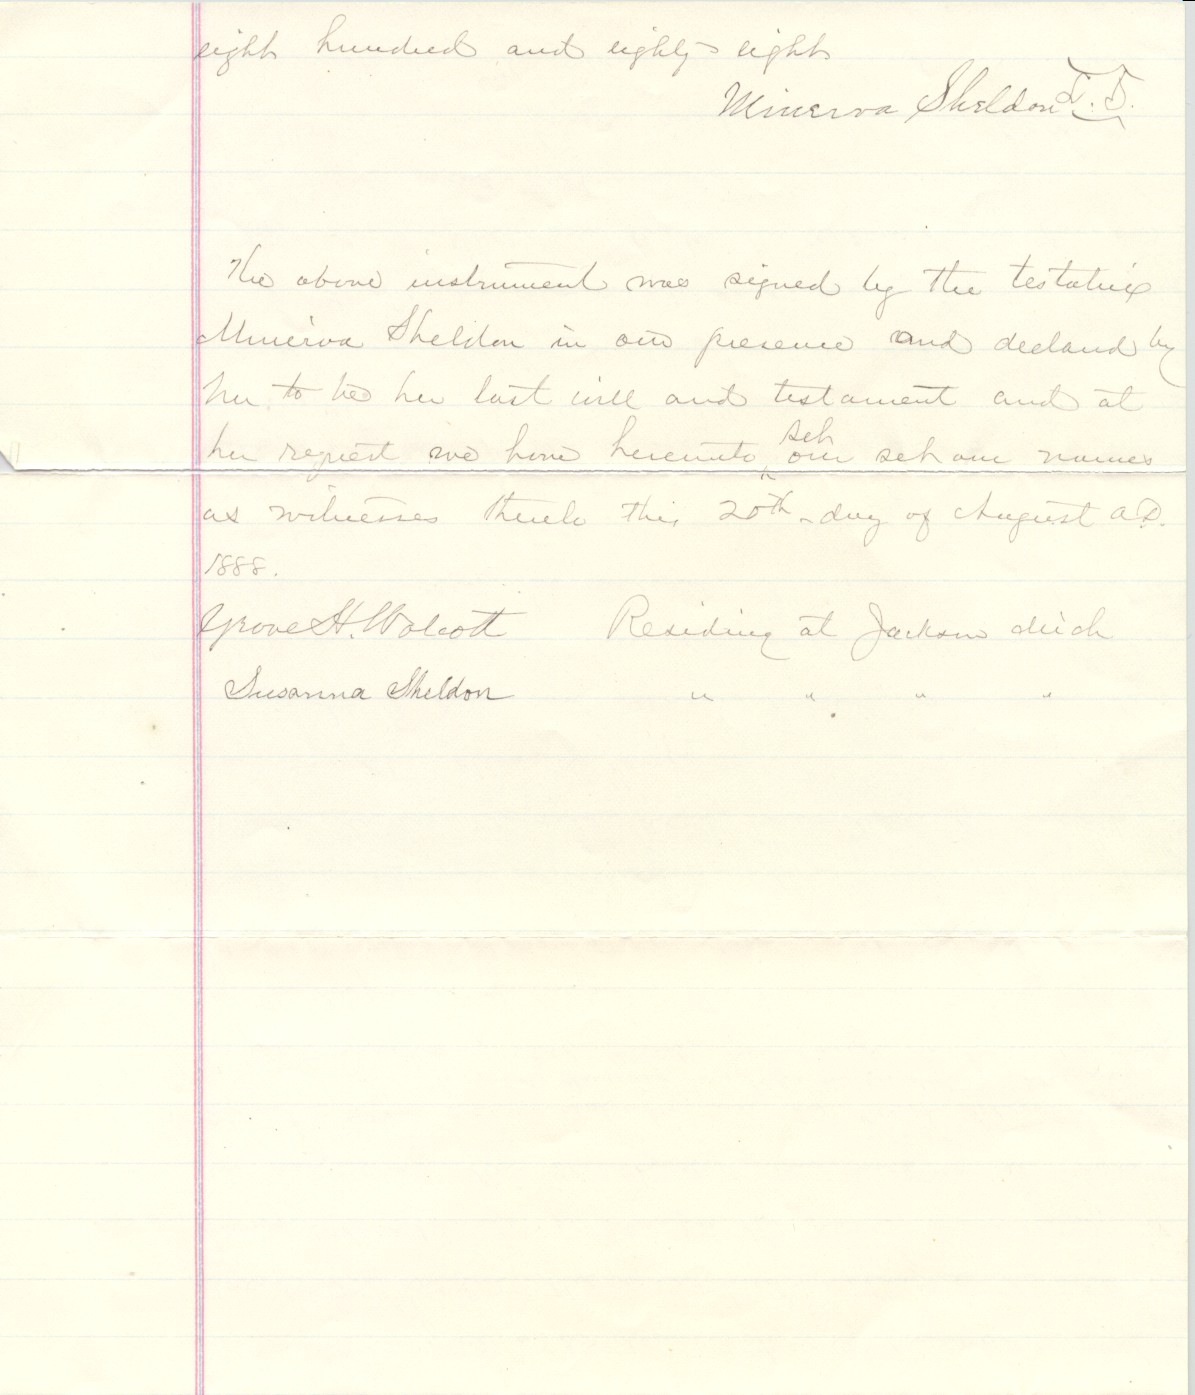 eight hundred and eighty-eight
Minerva Sheldon L.S.
The above instrument was signed by the testatrix
Minerva Sheldon in our presence and declared by
her to be her last will and testament and at
set
her request we have hereunto ^ our set our names
as witnesses thereto this 20th day of August A.D.
1888.
Grove H. Wolcott Residing at Jackson Mich
Susanna Sheldon " " " "